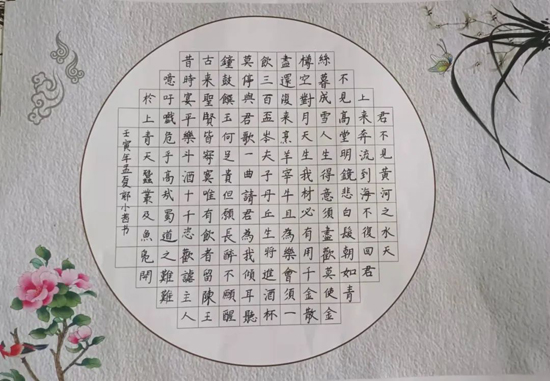 君不見黃河之水天
上來奔流到海不復回君
不見高堂明鏡悲白髮朝如青
絲暮成雪人生得意須盡歡莫使金
樽空對月天生我材必有用千金散
盡還復來烹羊宰牛且為樂會須一
飲三百盃岑夫子丹丘生將進酒杯
莫停與君歌一曲請君為我傾耳聽
鐘鼓饌玉何足貴但願長醉不願醒
古來聖賢皆寂寞唯有飲者留陳王
昔時宴平樂斗酒十千恣歡謔主人
噫吁嚱危乎高哉蜀道之難難
於上青天蠶叢及魚鳧開
壬寅年孟夏小书